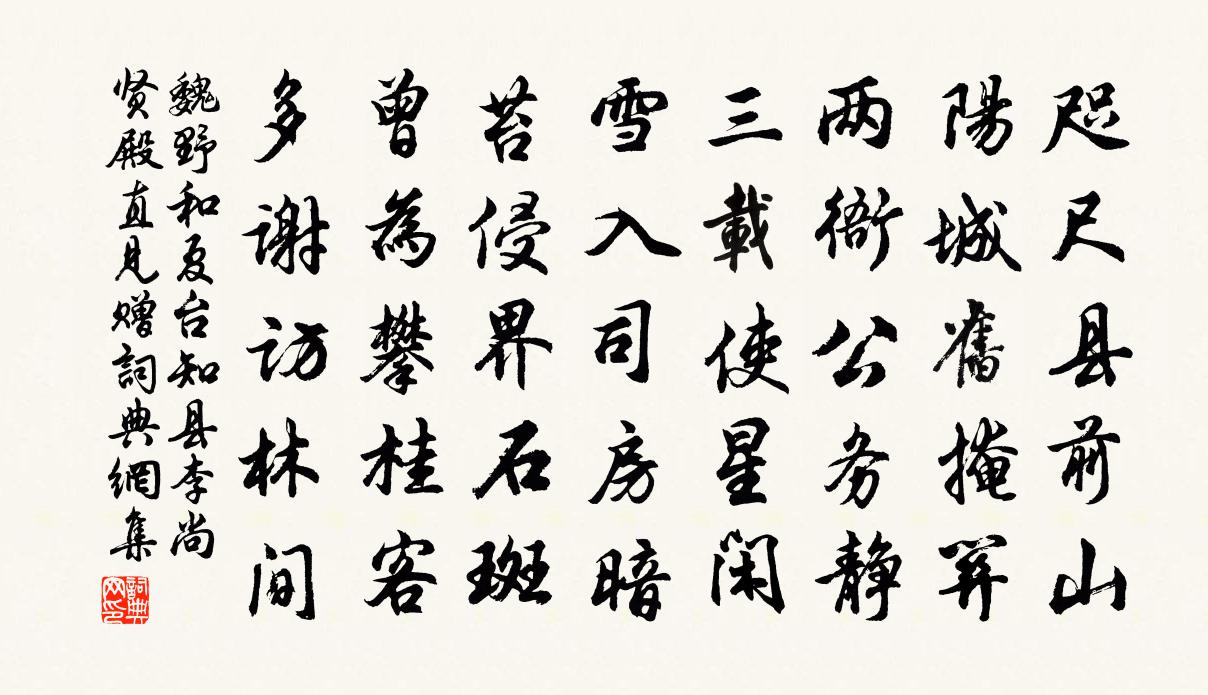 咫尺县前山
陽城舊掩關
两衙公务静
三載使星闲
雪入司房暗
苔侵界石斑
曾為攀桂客
多谢访林间
魏野和夏台知县李尚
贤殿直見赠詞典網集
詞典网印